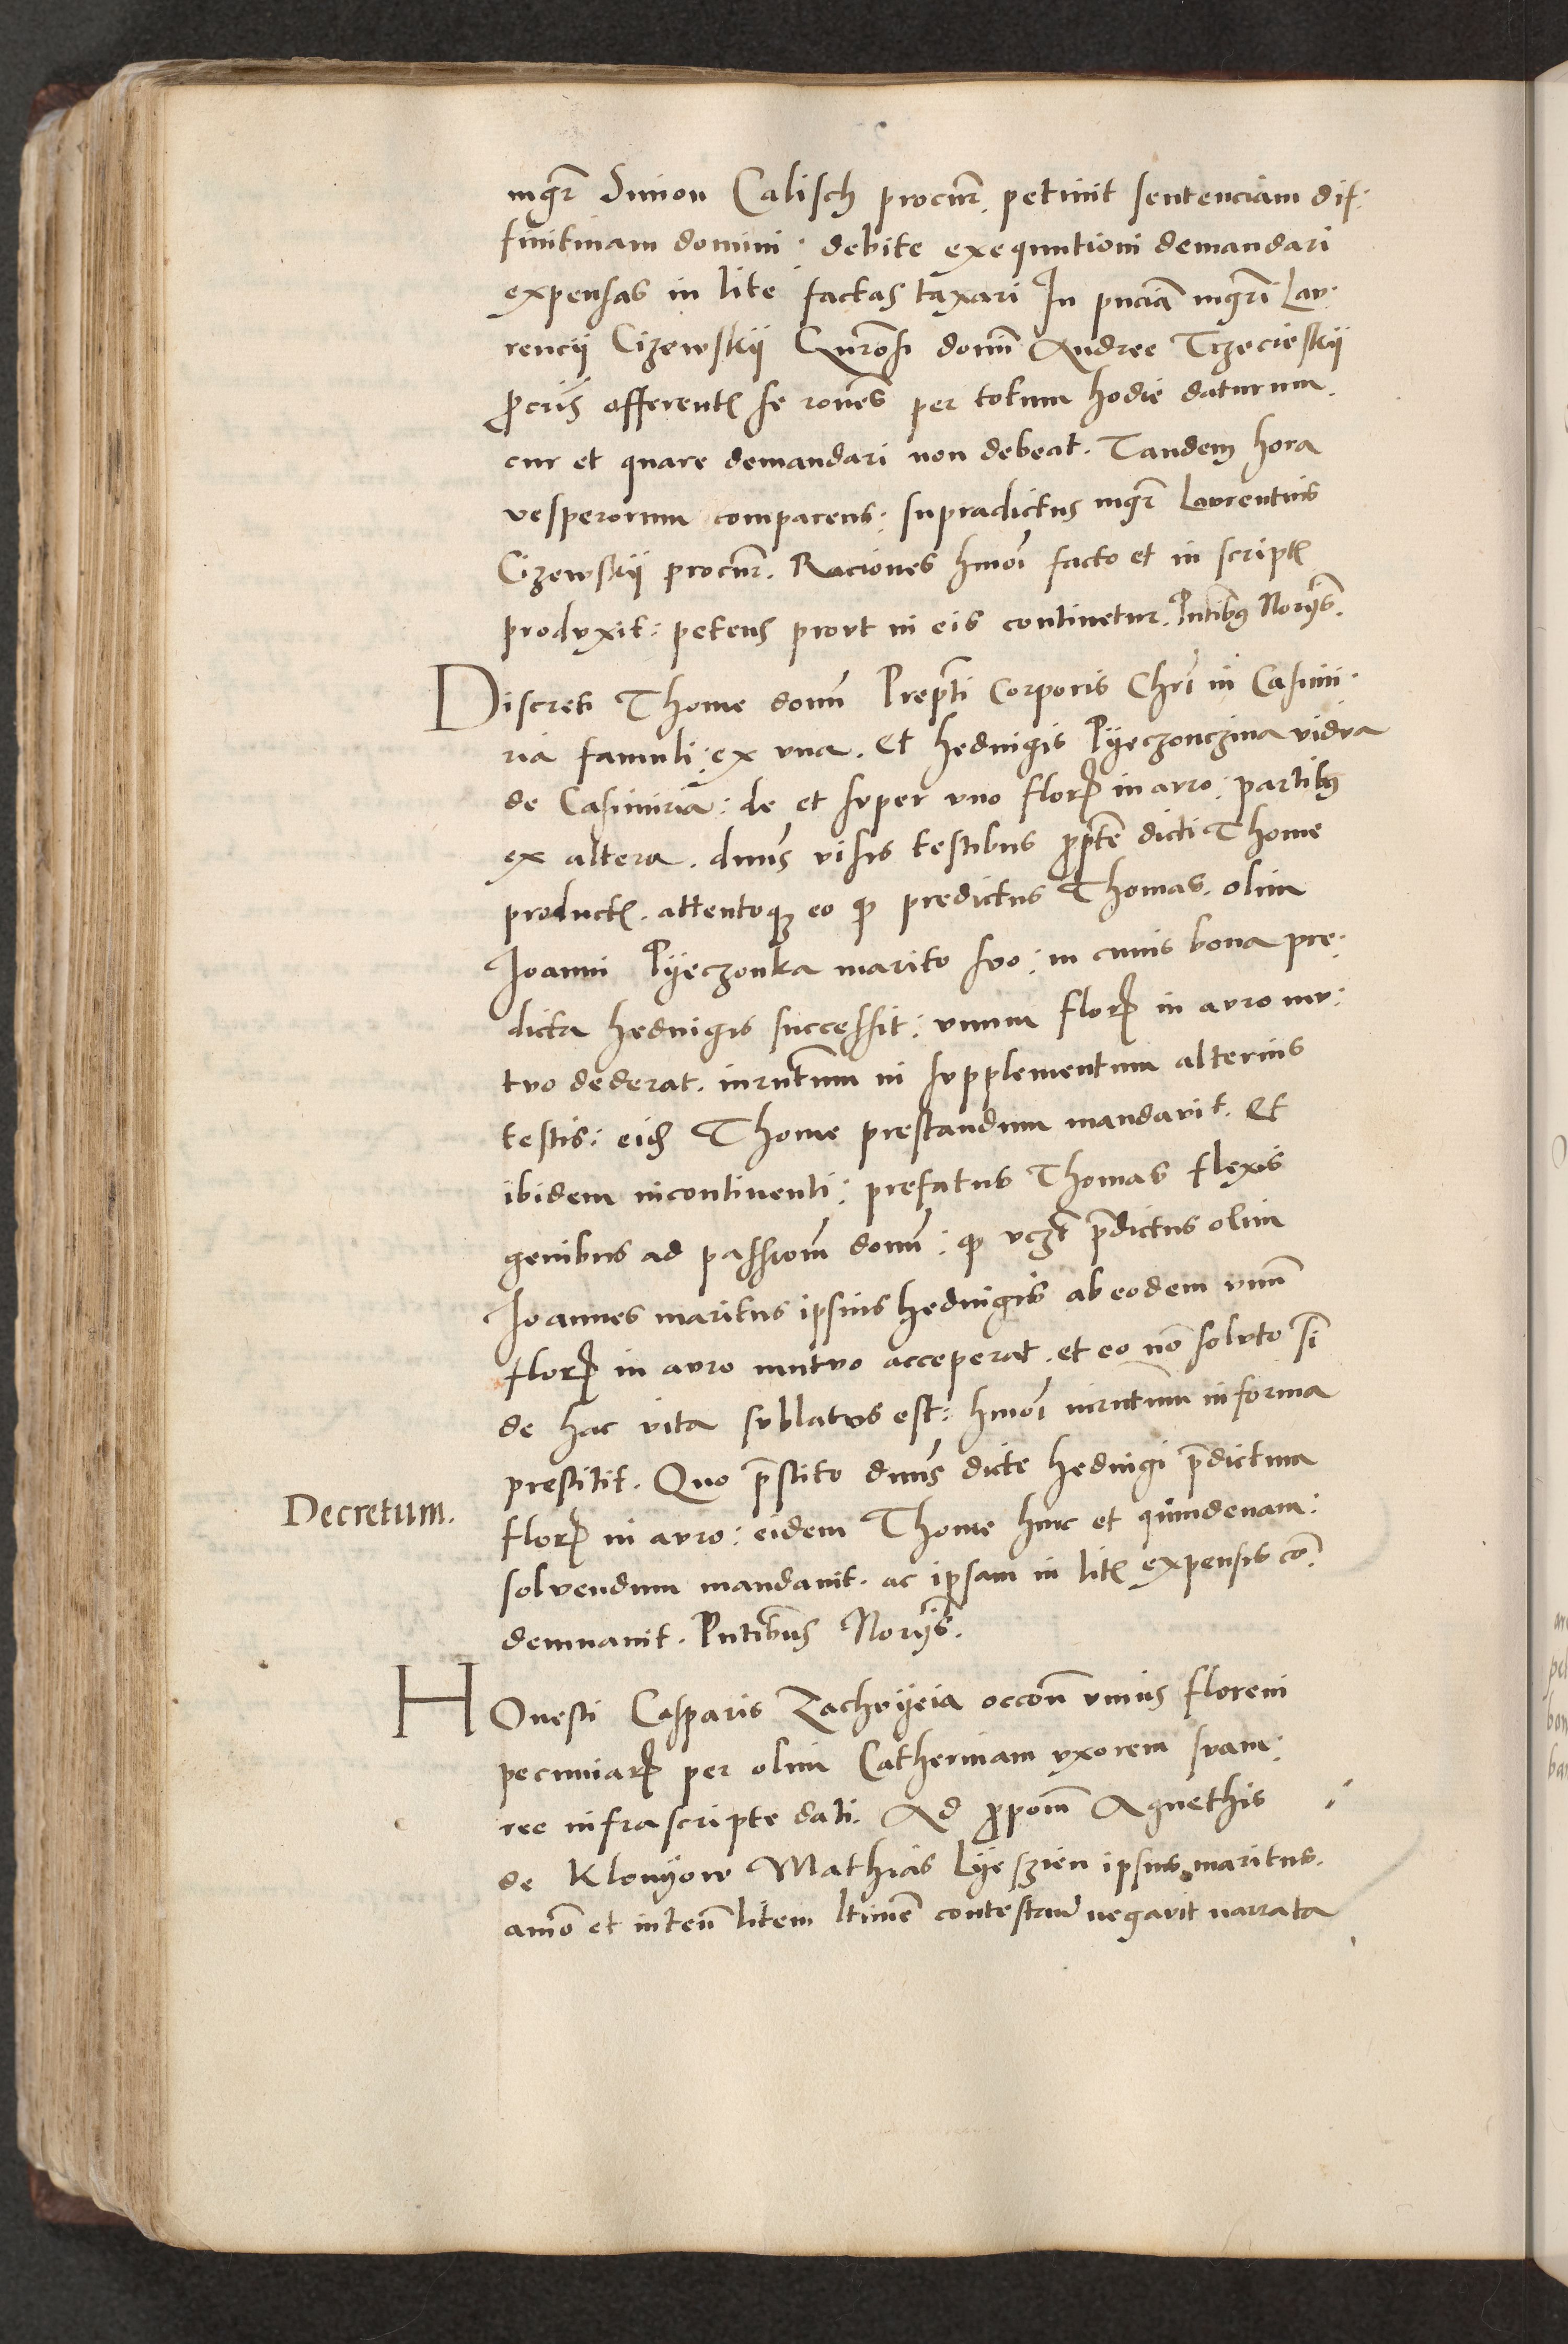 mgr̃ Simon Calisch procur̃. petiuit sentenciam dif:
finitiuam domini: debite exequutioni demandari
expensas in lite factas taxari In pn̄ciã mgr̃i Lav:
rencij Cizewskij Gñrosi domĩ Andree Trzecieskij
ꝓcuris offerentꝭ se rõnes per totum hodie daturum.
cur et quare demandari non debeat. Tandem hora
vesperorum comparens: supradictus mgr̃ Lavrentius
Cizewskij procur̃. Raciones hmõi facto et in scriptꝭ
prodvxit: petens provt in eis continetur. Pñtibꝰ Norijs.
Discreti Thome domĩ Prepti Corporis Chrĩ in Casimi:
ria famuli: ex vna. et Hedvigis Pyeczonczina vidva
de Casimiria: de et svper vno florꝭ in avro: partibꝰ
ex altera. dnũs visis testibus ꝓpte dicti Thome
productꝭ. attentoqꝫ eo ꝙ predictus Thomas. olim
Joanni Pyeczonka marito svo: in cuius bona pre:
dicta Hedvigis successit: vnum florꝭ in avro mv:
tvo dederat. iurmtum in svpplementum alterius
testis: eidꝫ Thome prestandum mandavit. Et
ibidem incontinenti: prefatus Thomas flexis
genibus ad passiom̃ domĩ: ꝙ vczt p̃dictus olim
Joannes maritus ipsius Hedvigis ab eodem vnũ
florꝭ in avro mutvo acceperat. et eo nõ solvto sĩ
de hac vita svblatvs est: hmõi iurmtum in forma
prestitit. Quo p̃stito dnũs dicte Hedvigi p̃dictum
Decretum.
florꝭ in avro: eidem Thome hinc et quindenam:
solvendum mandauit. ac ipsam in litꝭ expensis cõ:
demnauit. Pñtibus Norijs.
HOnesti Casparis Zachvyeia occoñ vnius floreni
pecuniarꝭ per olim Catherinam vxorem svam:
ree infrascripte dati. Ad ꝓpom̃ Agnethis
de Klonyow Mathias Lyeszien ipsius maritus.
amõ et inteñ litem ltime contestanđ negavit narrata